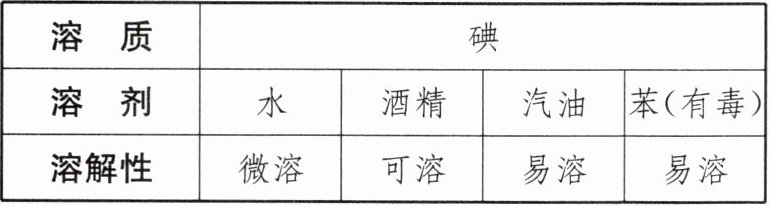 溶 质 碘
溶 剂 水 酒精 汽油 苯(有毒)
溶解性 微溶 可溶 易溶 易溶